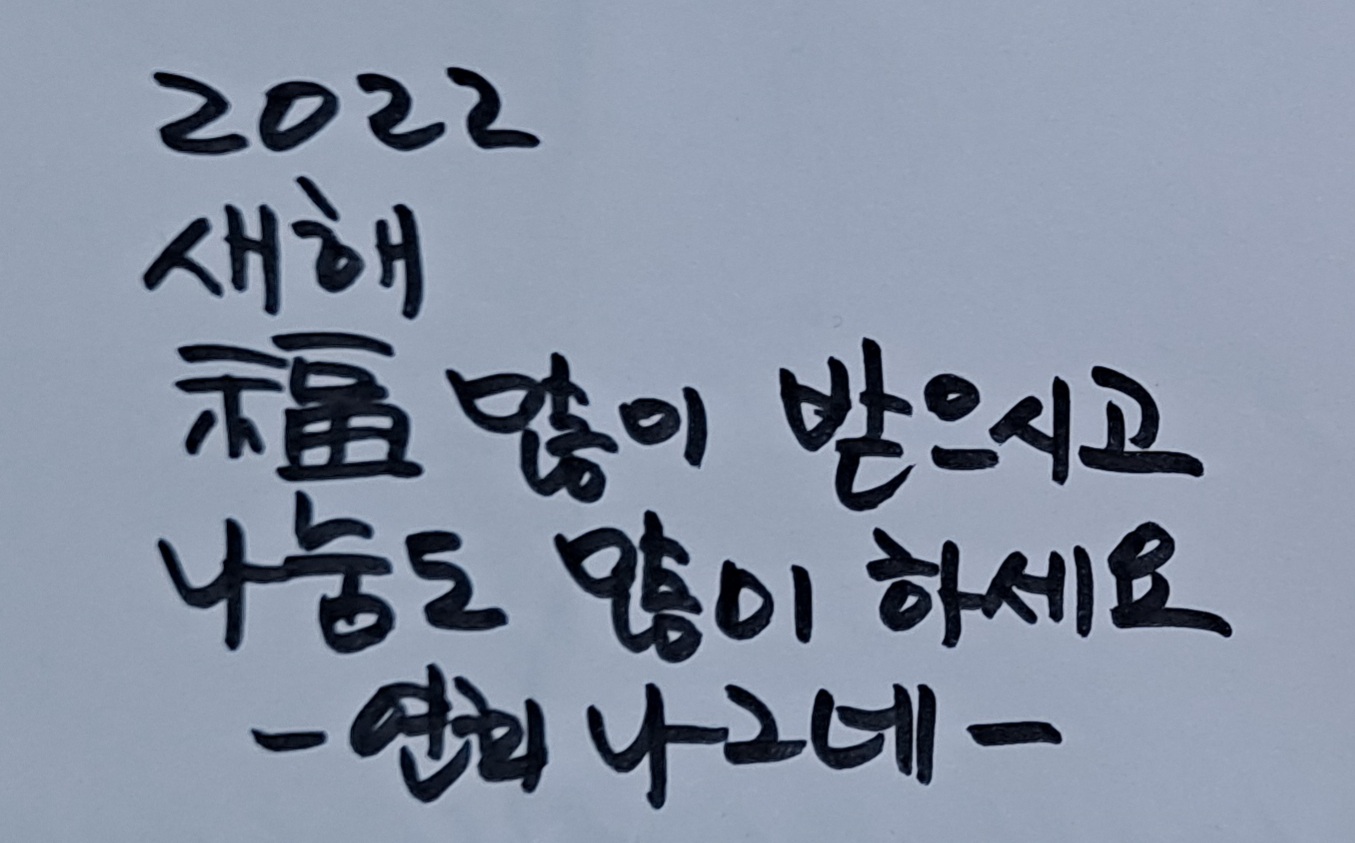 2022
새해
福 많이 받으시고
나눔도 많이 하세요
- 연희 나그네 -